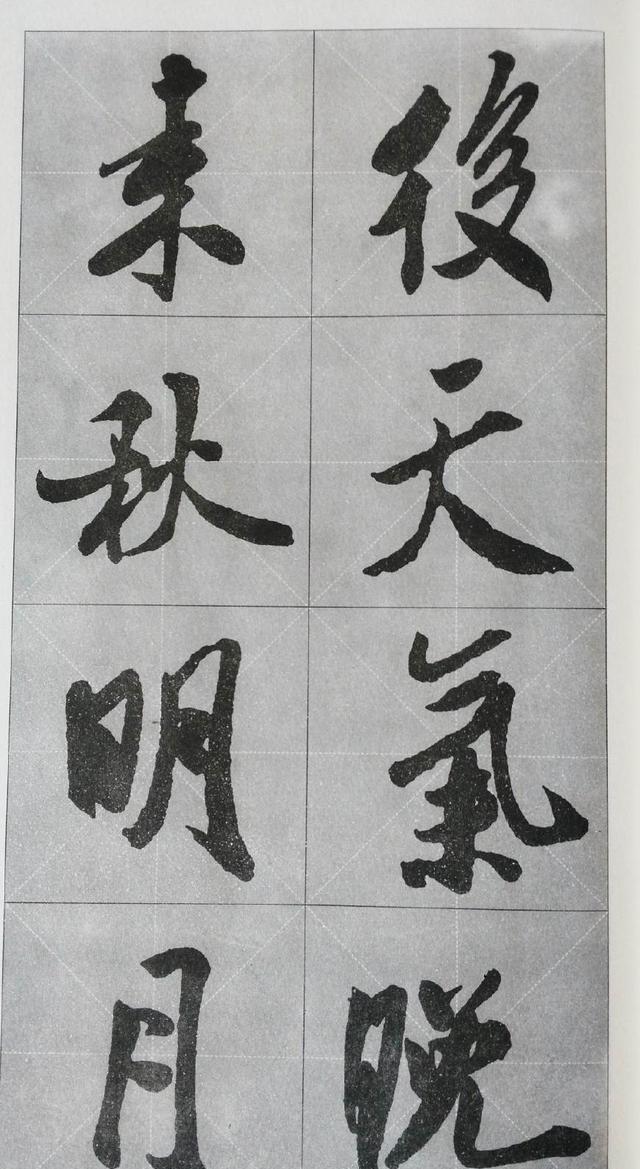 後天氣晚
来秋明月